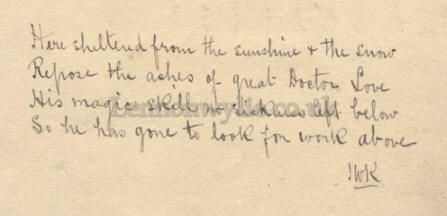 Here sheltered from the sunshine & the snow
Repose the ashes of great Doctor Love
His magic skill no sickness left below
So he has gone to look for work above
JWK